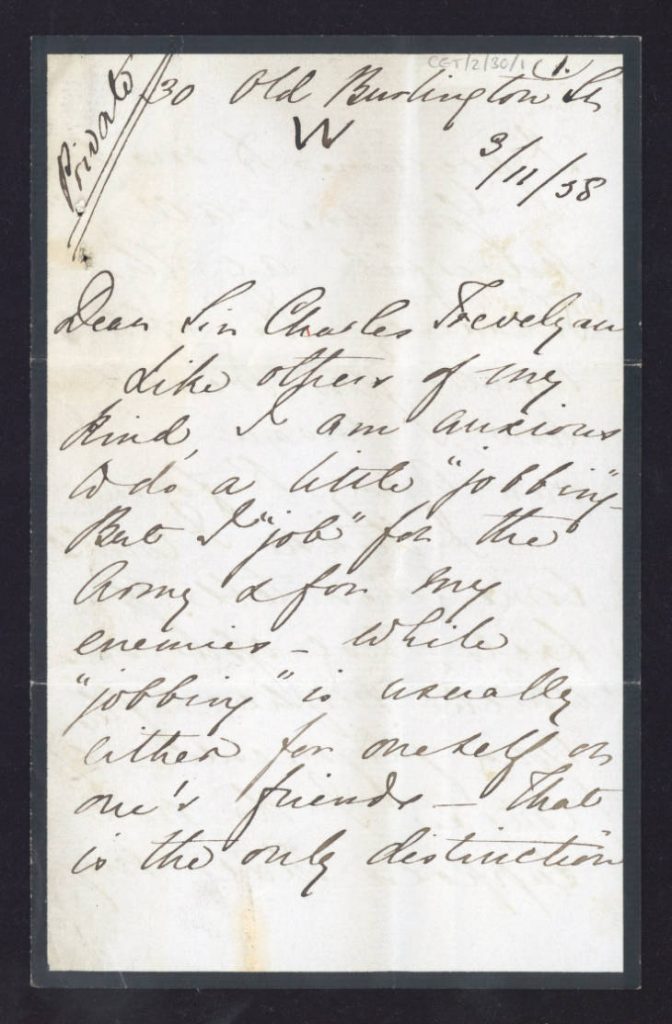 CET/2/30/1 (1.
Private
30 Old Burlington St
W
3/11/58
Dear Sir Charles Trevelyan
Like others of my
kind, I am anxious
to do a little "jobbing"
But I "job" for the
Army & for my
enemies - while
"jobbing" is usually
either for oneself or
one's friends - That
is the only distinction